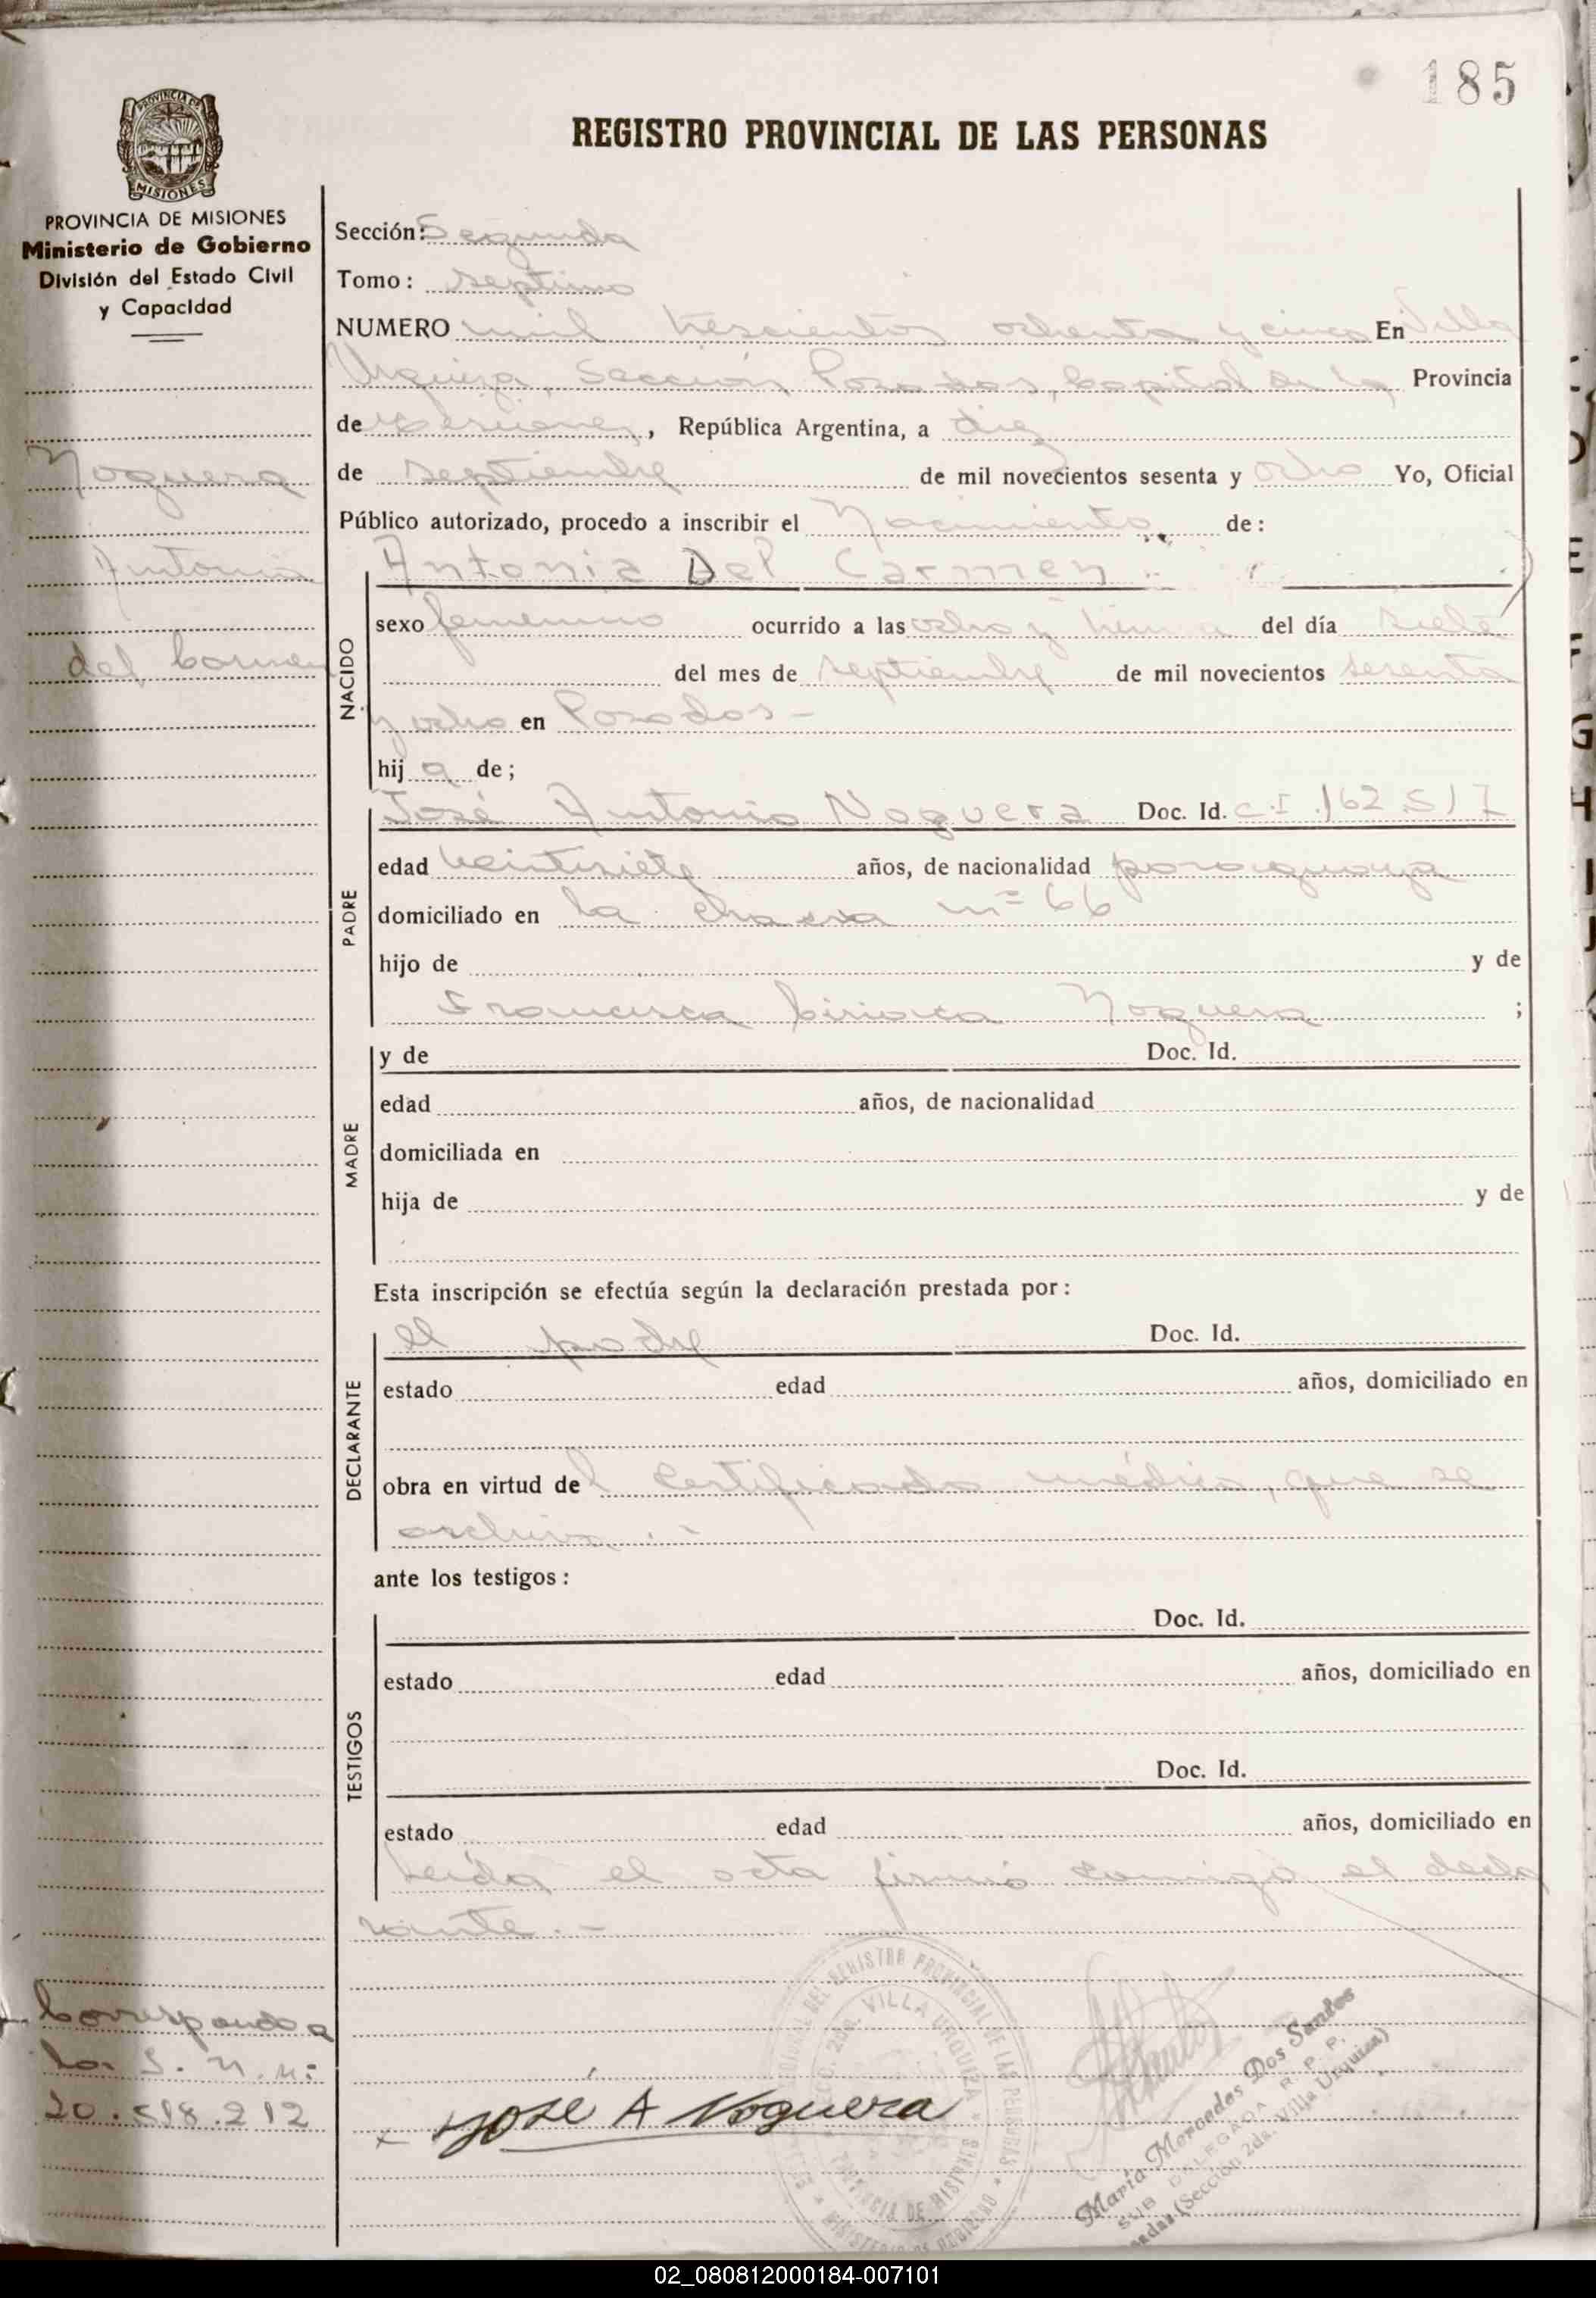 185
REGISTRO PROVINCIAL DE LAS PERSONAS
PROVINCIA DE MISIONES
PROVINCIA DE MISIONES
Ministerio de Gobierno
División del Estado Civil
y Capacidad
Noguera
Antonia
del Carmen
Sección: Segunda
Tomo: septimo
NUMERO mil trescientos ochenta y cinco En Villa
Urquiza, Sección Posadas, Capital de la Provincia
de Misiones, República Argentina, a diez
de septiembre de mil novecientos sesenta y ocho Yo, Oficial
Público autorizado, procedo a inscribir el Nacimiento de:
Antonia Del Carmen
NACIDO
sexo femenino ocurrido a las ocho y del día siete
del mes de septiembre de mil novecientos sesenta
y ocho en Posadas-
hij a de;
PADRE
José Antonio Noguera Doc. Id. C.I. 162.517
edad veintisiete años, de nacionalidad paraguaya
domiciliado en la chacra nº 66
hijo de y de
Francisca Ciriaca Noguera ;
MADRE
y de Doc. Id.
edad años, de nacionalidad
domiciliada en
hija de y de
Esta inscripción se efectúa según la declaración prestada por:
DECLARANTE
el padre Doc. Id.
estado edad años, domiciliado en
obra en virtud del certificado médico, que se
archiva.-
ante los testigos:
TESTIGOS
Doc. Id.
estado edad años, domiciliado en
Doc. Id.
estado edad años, domiciliado en
Leída el acta firmó conmigo el decla
rante.-
Corresponde a
la
20.518.212
José A Noguera
REGISTRO PROVINCIAL DE LAS PERSONAS
VILLA URQUIZA
PROVINCIA DE MISIONES
MINISTERIO DE GOBIERNO
María Mercedes Dos Santos
SUB DELEGADA R. P. P.
(Sección 2da. Villa Urquiza)
02_080812000184-007101